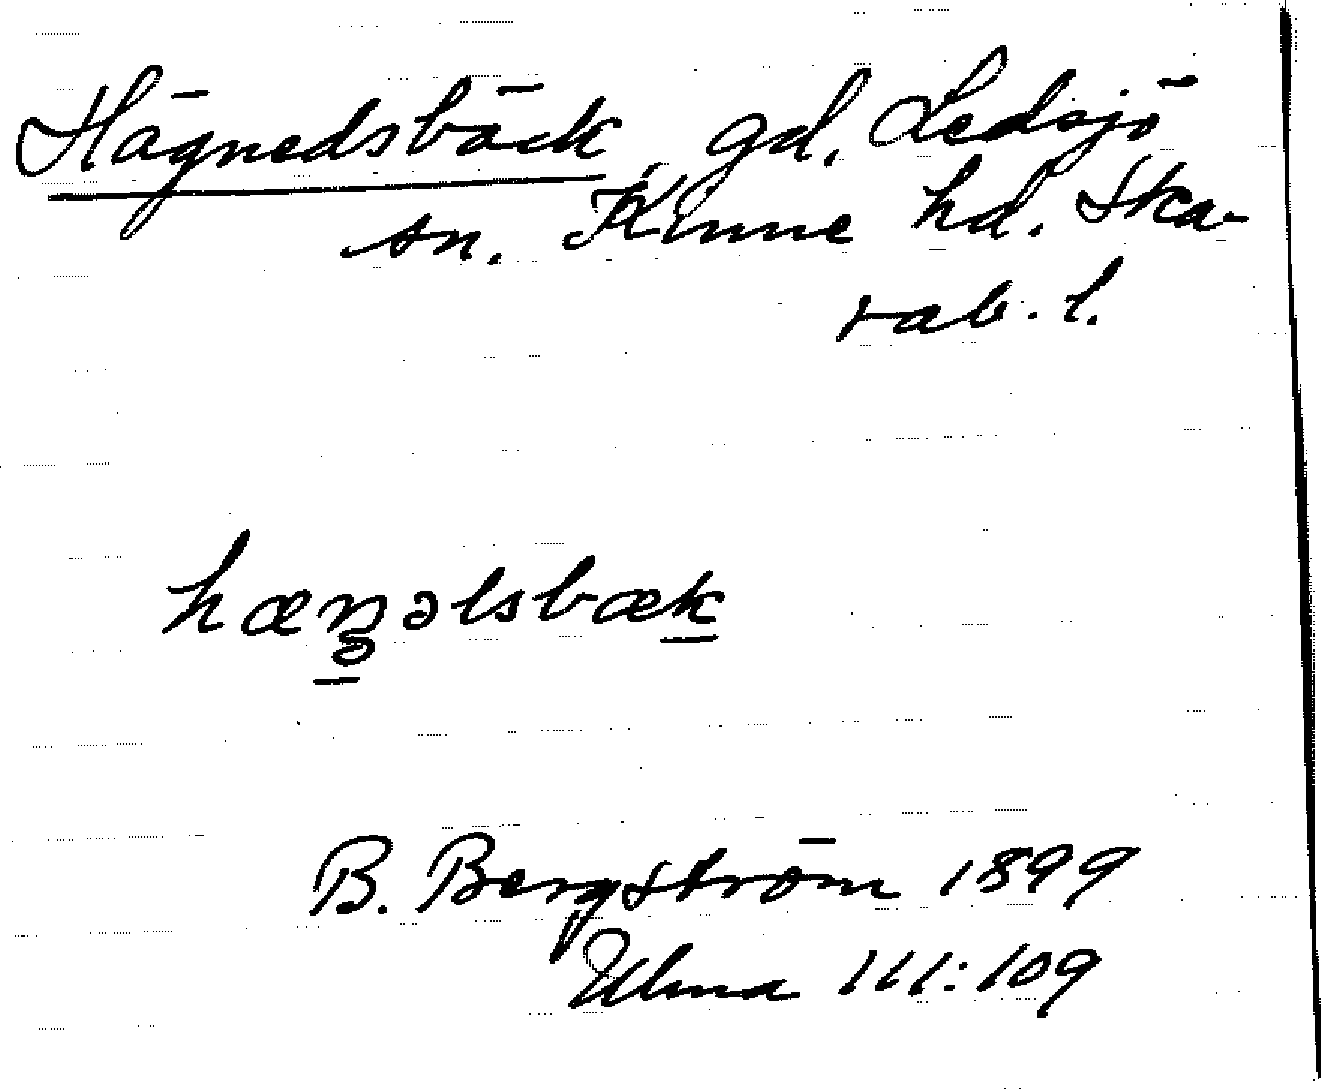 Hägnedsbäck gd. Ledsjö
sn. Kinne hd. Ska-
rab. l.
hæŋəlsbæk
B. Bergström 1899
Ulma 111:109